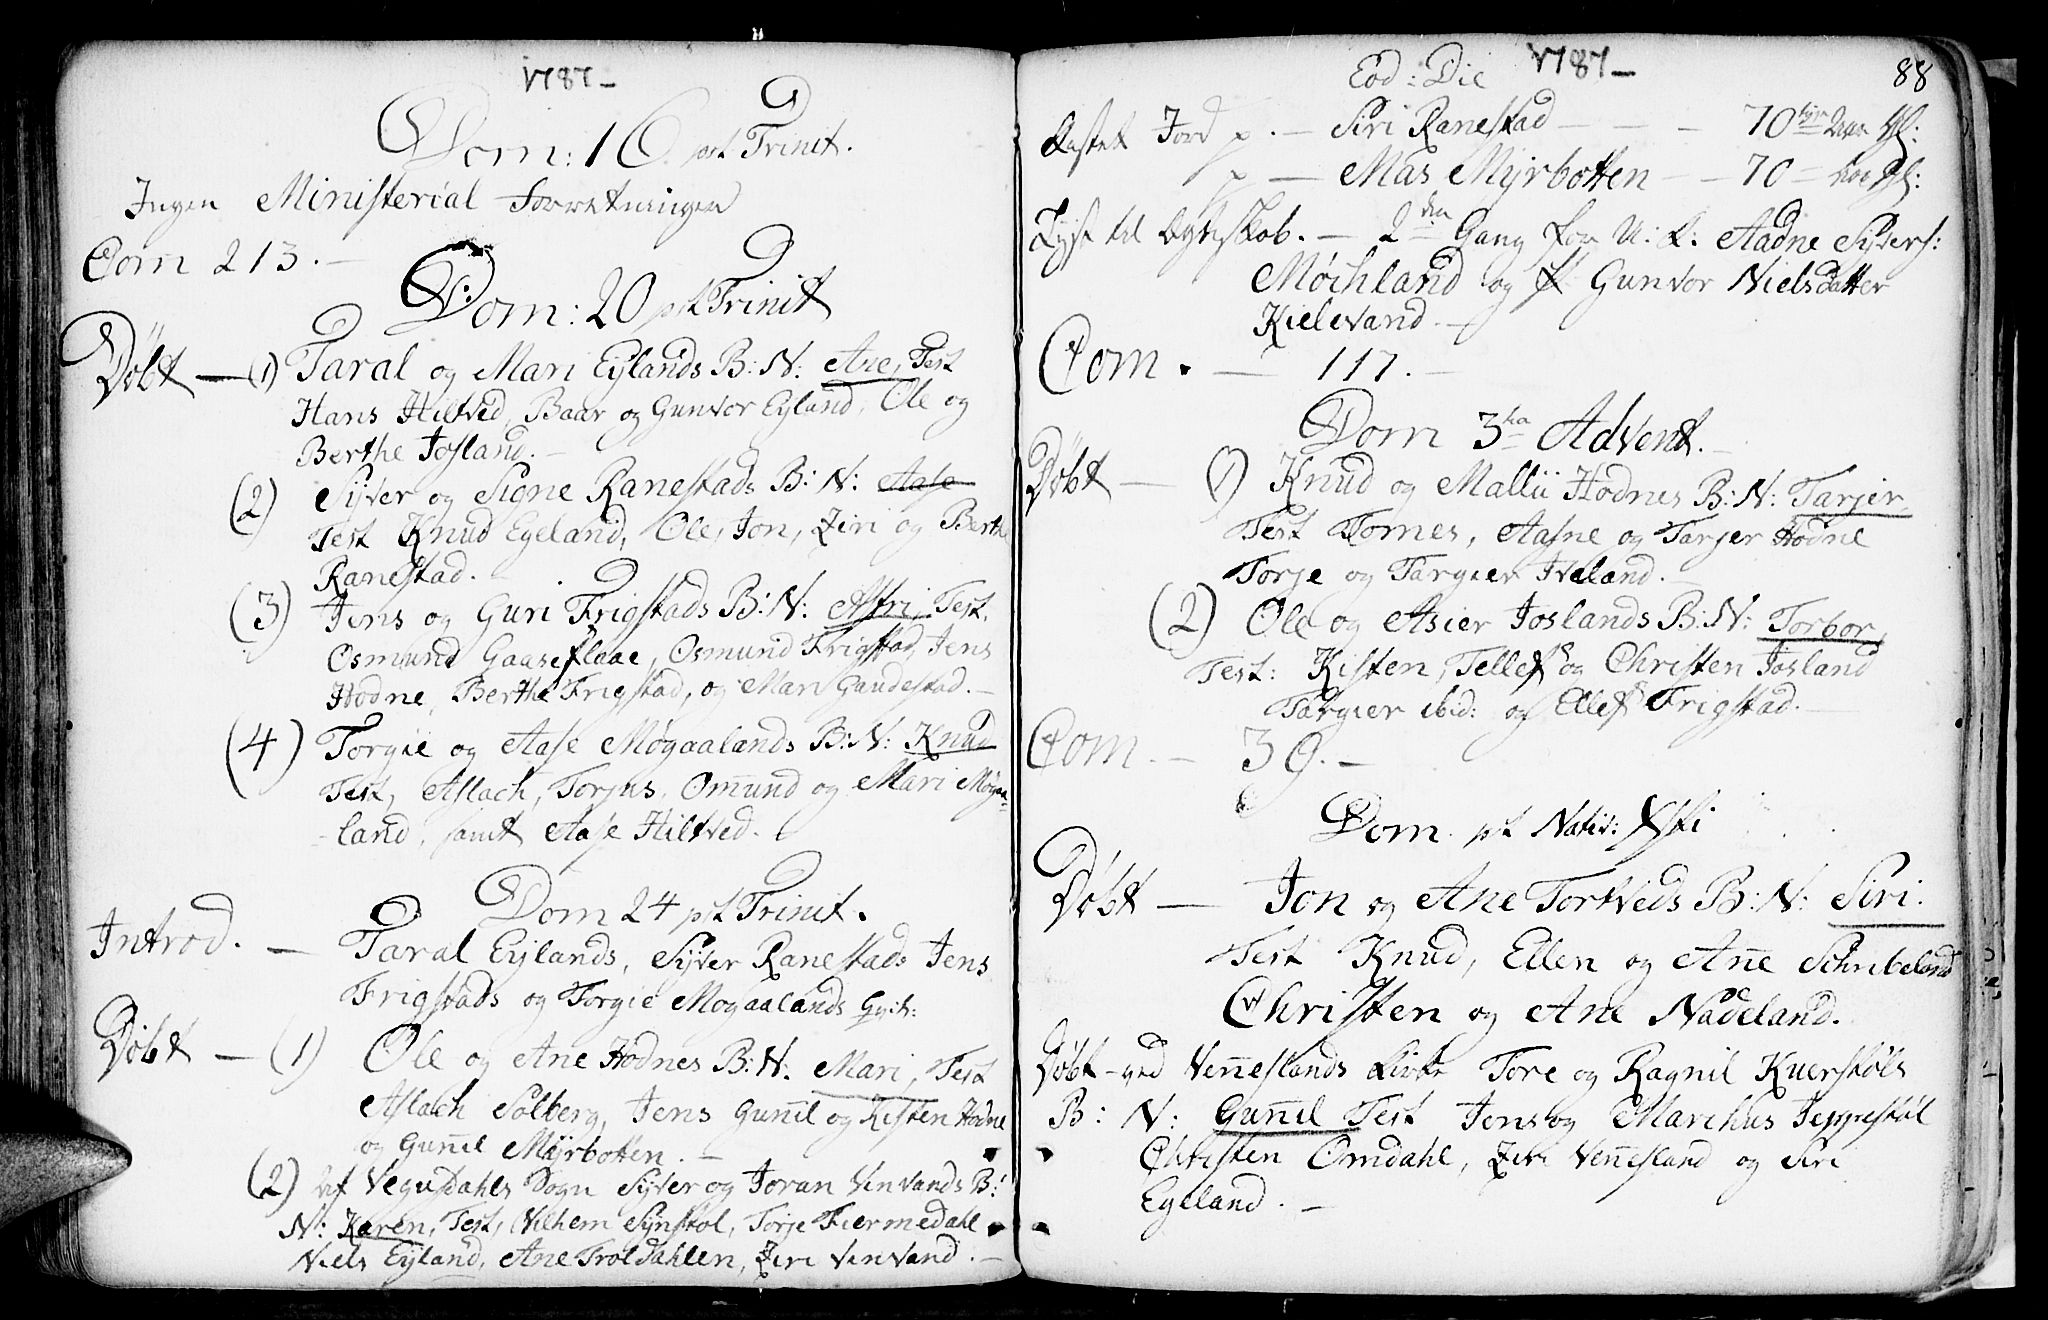 1787 –
Dom: 16 pst Trinit.
Ingen Ministerial forretninger
Com 213. –
Dom: 20 pst Trinit
Døbt – (1) Taral og Mari Eÿlands B: N: Ane, Test
Hans Hiltved, Baar og Gunvor Eyland, Ole og
Berthe Josland. –
(2) Siÿver og Signe Ranestads B: N: Aase
Test Knud Egeland, Ole, Jon, Ziri og Berthe
Ranestad. –
(3) Jens og Guri Frigstads B: N: Astri, Test,
Osmund Gaaseflaae, Osmund Frigstad, Jens
Hodne, Berthe Frigstad, og Mari Gaudestad. –
(4) Torgie og Aase Møgaalands B: N: Knud
Test, Aslach, Torjus, Omund og Mari Møgaa-
land, samt Aase Hiltved.
Dom 24 pst Trinit.
Introd. – Taral Eylands, Siÿver Ranestads Jens
Frigstads og Torgie Mogaalands
Døbt – (1) Ole og Ane Hodnes B: N. Mari, Test
Aslach Solberg, Jens Gunnil og Kisten Hodne
og Gunnil Mÿrbotten. –
(2) af Vegusdahls Sogn Siÿver og Joran Vinvands B:
N: Karen, Test, Vilhem Synstøl, Torje Fiermedahl
Niels Eyland, Ane Troldahlen, Ziri Vinvand. –
1787 –
88
Eod: Die
Kastet Jord p. – Siri Ranestad – – – 70
p – Mas Mÿrbotten – – 70 =
Lyst til Egteskob. – 2den Gang for U: K: Aadne Siÿvers:
Møichland og p Gunvor Nielsdatter
Kielevand. –
Com. – 117. –
Dom 3tia Advent. –
Døbt – 1) Knud og Mallii Hodnes B: N: Tarjer,
Test Tornes, Aasne og Tarjer Hodne
Torje og Targier Iveland. –
(2) Ole og Asier Joslands B: N: Torbor,
Test: Kisten, Tellef og Christen Josland
Targier ibid: og Ellef Frigstad. –
Com. – 39. –
Dom. pst Nativ: Xsti
Døbt – Jon og Ane Tortveds B: N: Siri.
Test Knud, Ellen og Ane Schrebeland
Christen og Ane Nadeland.
Døbt – ved Venneslands Kirke Tore og Ragnil Kuerstøls
B: N: Gunnil Test Jens og Marthus Jeppestøl
Christen Omdahl, Ziri Vennesland og Siri
Egeland. –